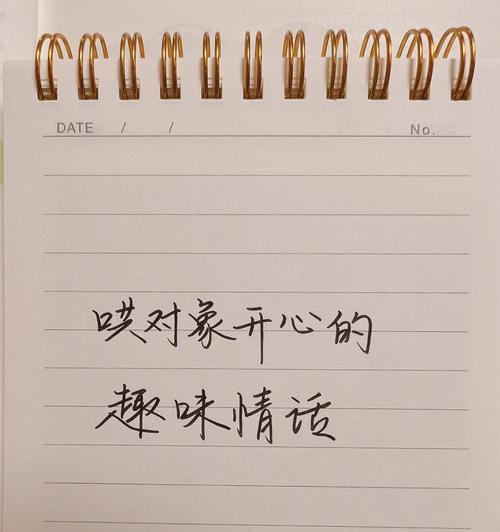 DATE / / No.
哄对象开心的
趣味情话